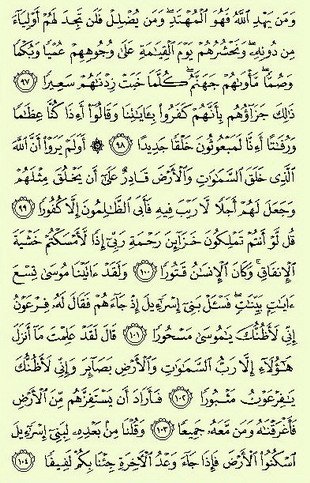 وَمَن يَهْدِ ٱللَّهُ فَهُوَ ٱلْمُهْتَدِ ۖ وَمَن يُضْلِلْ فَلَن تَجِدَ لَهُمْ أَوْلِيَآءَ
مِن دُونِهِۦ ۖ وَنَحْشُرُهُمْ يَوْمَ ٱلْقِيَـٰمَةِ عَلَىٰ وُجُوهِهِمْ عُمْيًا وَبُكْمًا
وَصُمًّا ۖ مَّأْوَىٰهُمْ جَهَنَّمُ ۖ كُلَّمَا خَبَتْ زِدْنَـٰهُمْ سَعِيرًا ﴿٩٧﴾
ذَٰلِكَ جَزَآؤُهُم بِأَنَّهُمْ كَفَرُوا۟ بِـَٔايَـٰتِنَا وَقَالُوٓا۟ أَءِذَا كُنَّا عِظَـٰمًا
وَرُفَـٰتًا أَءِنَّا لَمَبْعُوثُونَ خَلْقًا جَدِيدًا ﴿٩٨﴾ ۞ أَوَلَمْ يَرَوْا۟ أَنَّ ٱللَّهَ
ٱلَّذِى خَلَقَ ٱلسَّمَـٰوَٰتِ وَٱلْأَرْضَ قَادِرٌ عَلَىٰٓ أَن يَخْلُقَ مِثْلَهُمْ
وَجَعَلَ لَهُمْ أَجَلًا لَّا رَيْبَ فِيهِ فَأَبَى ٱلظَّـٰلِمُونَ إِلَّا كُفُورًا ﴿٩٩﴾
قُل لَّوْ أَنتُمْ تَمْلِكُونَ خَزَآئِنَ رَحْمَةِ رَبِّىٓ إِذًا لَّأَمْسَكْتُمْ خَشْيَةَ
ٱلْإِنفَاقِ ۚ وَكَانَ ٱلْإِنسَـٰنُ قَتُورًا ﴿١٠٠﴾ وَلَقَدْ ءَاتَيْنَا مُوسَىٰ تِسْعَ
ءَايَـٰتٍۭ بَيِّنَـٰتٍ ۖ فَسْـَٔلْ بَنِىٓ إِسْرَٰٓءِيلَ إِذْ جَآءَهُمْ فَقَالَ لَهُۥ فِرْعَوْنُ
إِنِّى لَأَظُنُّكَ يَـٰمُوسَىٰ مَسْحُورًا ﴿١٠١﴾ قَالَ لَقَدْ عَلِمْتَ مَآ أَنزَلَ
هَـٰٓؤُلَآءِ إِلَّا رَبُّ ٱلسَّمَـٰوَٰتِ وَٱلْأَرْضِ بَصَآئِرَ وَإِنِّى لَأَظُنُّكَ
يَـٰفِرْعَوْنُ مَثْبُورًا ﴿١٠٢﴾ فَأَرَادَ أَن يَسْتَفِزَّهُم مِّنَ ٱلْأَرْضِ
فَأَغْرَقْنَـٰهُ وَمَن مَّعَهُۥ جَمِيعًا ﴿١٠٣﴾ وَقُلْنَا مِنۢ بَعْدِهِۦ لِبَنِىٓ إِسْرَٰٓءِيلَ
ٱسْكُنُوا۟ ٱلْأَرْضَ فَإِذَا جَآءَ وَعْدُ ٱلْـَٔاخِرَةِ جِئْنَا بِكُمْ لَفِيفًا ﴿١٠٤﴾